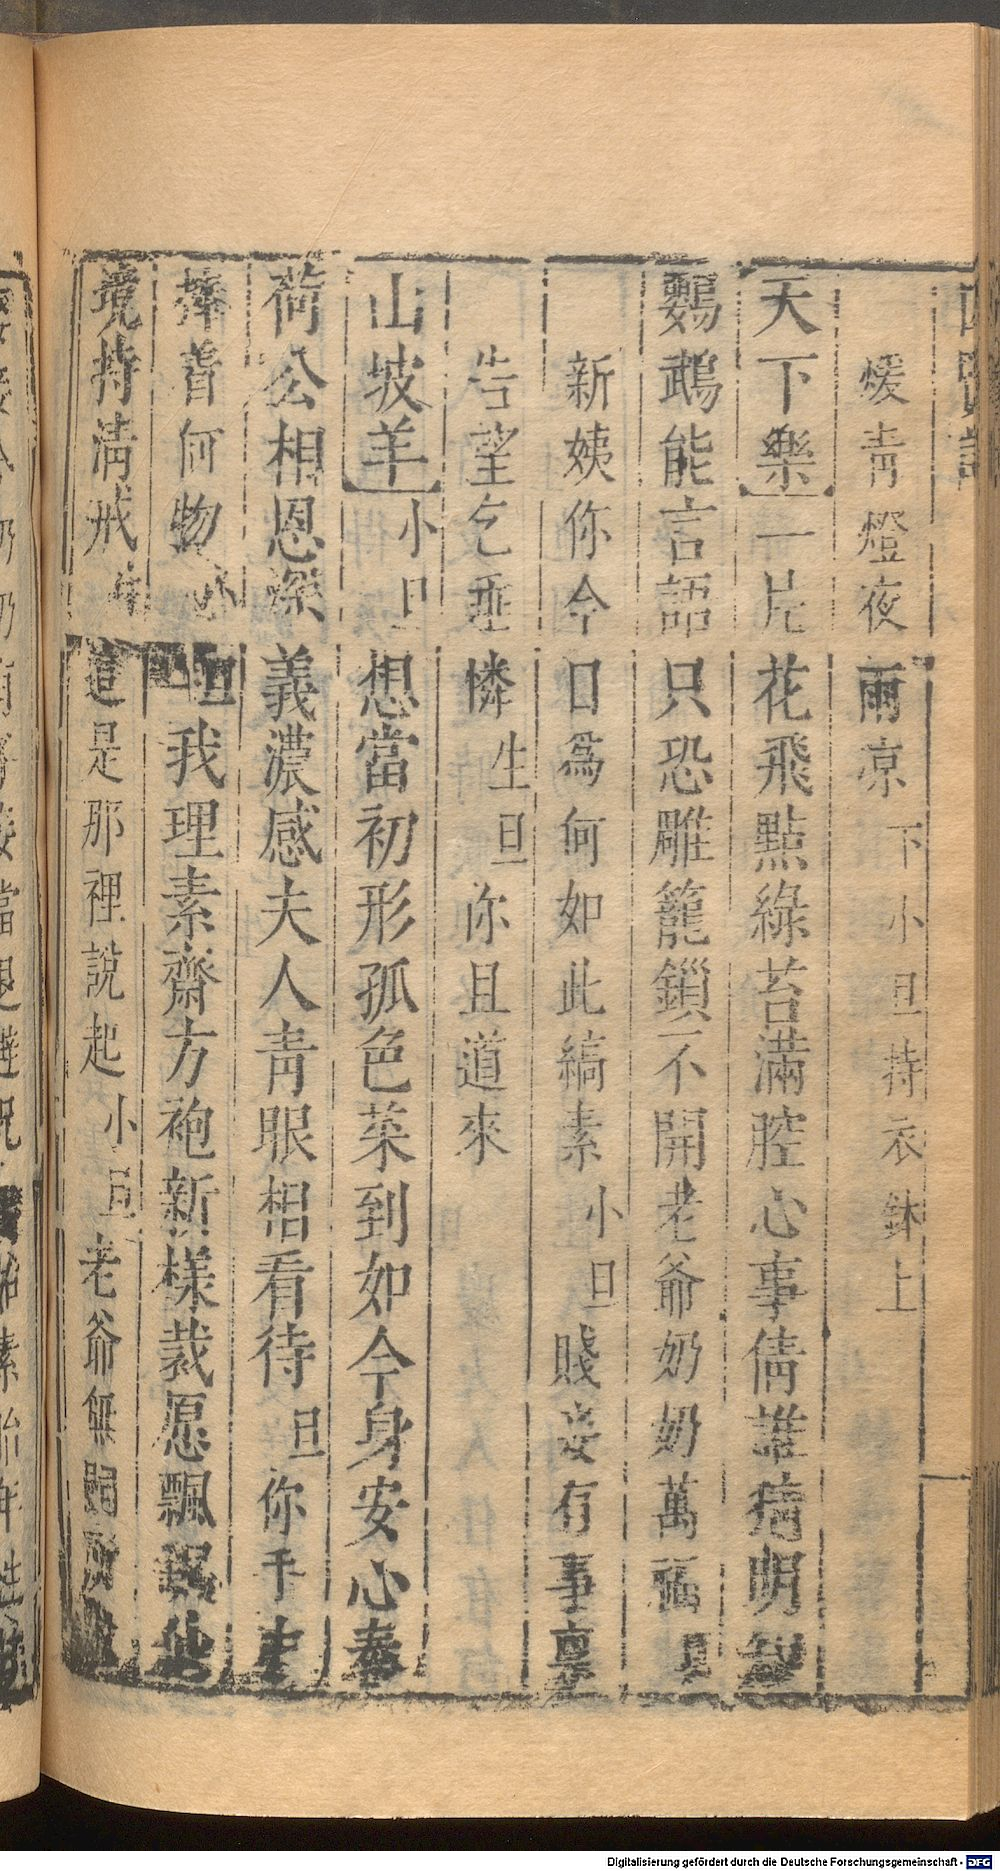 煖青燈夜雨凉 下 小旦持衣鉢上
天下樂 一片花飛點綠苔滿腔心事倩誰猜明知
鸚鵡能言語只恐雕籠鎖不開老爺奶奶萬福 旦
新姨你今日爲何如此縞素 小旦 賤妾有事禀
告望乞垂憐 生旦 你且道來
山坡羊 小旦 想當初形孤色菜到如今身安心泰
荷公相恩深義濃感夫人青眼相看待 旦 你手中
捧着何物 小旦 我理素齋方袍新樣裁愿飄
境持清戒 生 這是那裡說起 小旦 老爺無
Digitalisierung gefördert durch die Deutsche Forschungsgemeinschaft - DFG